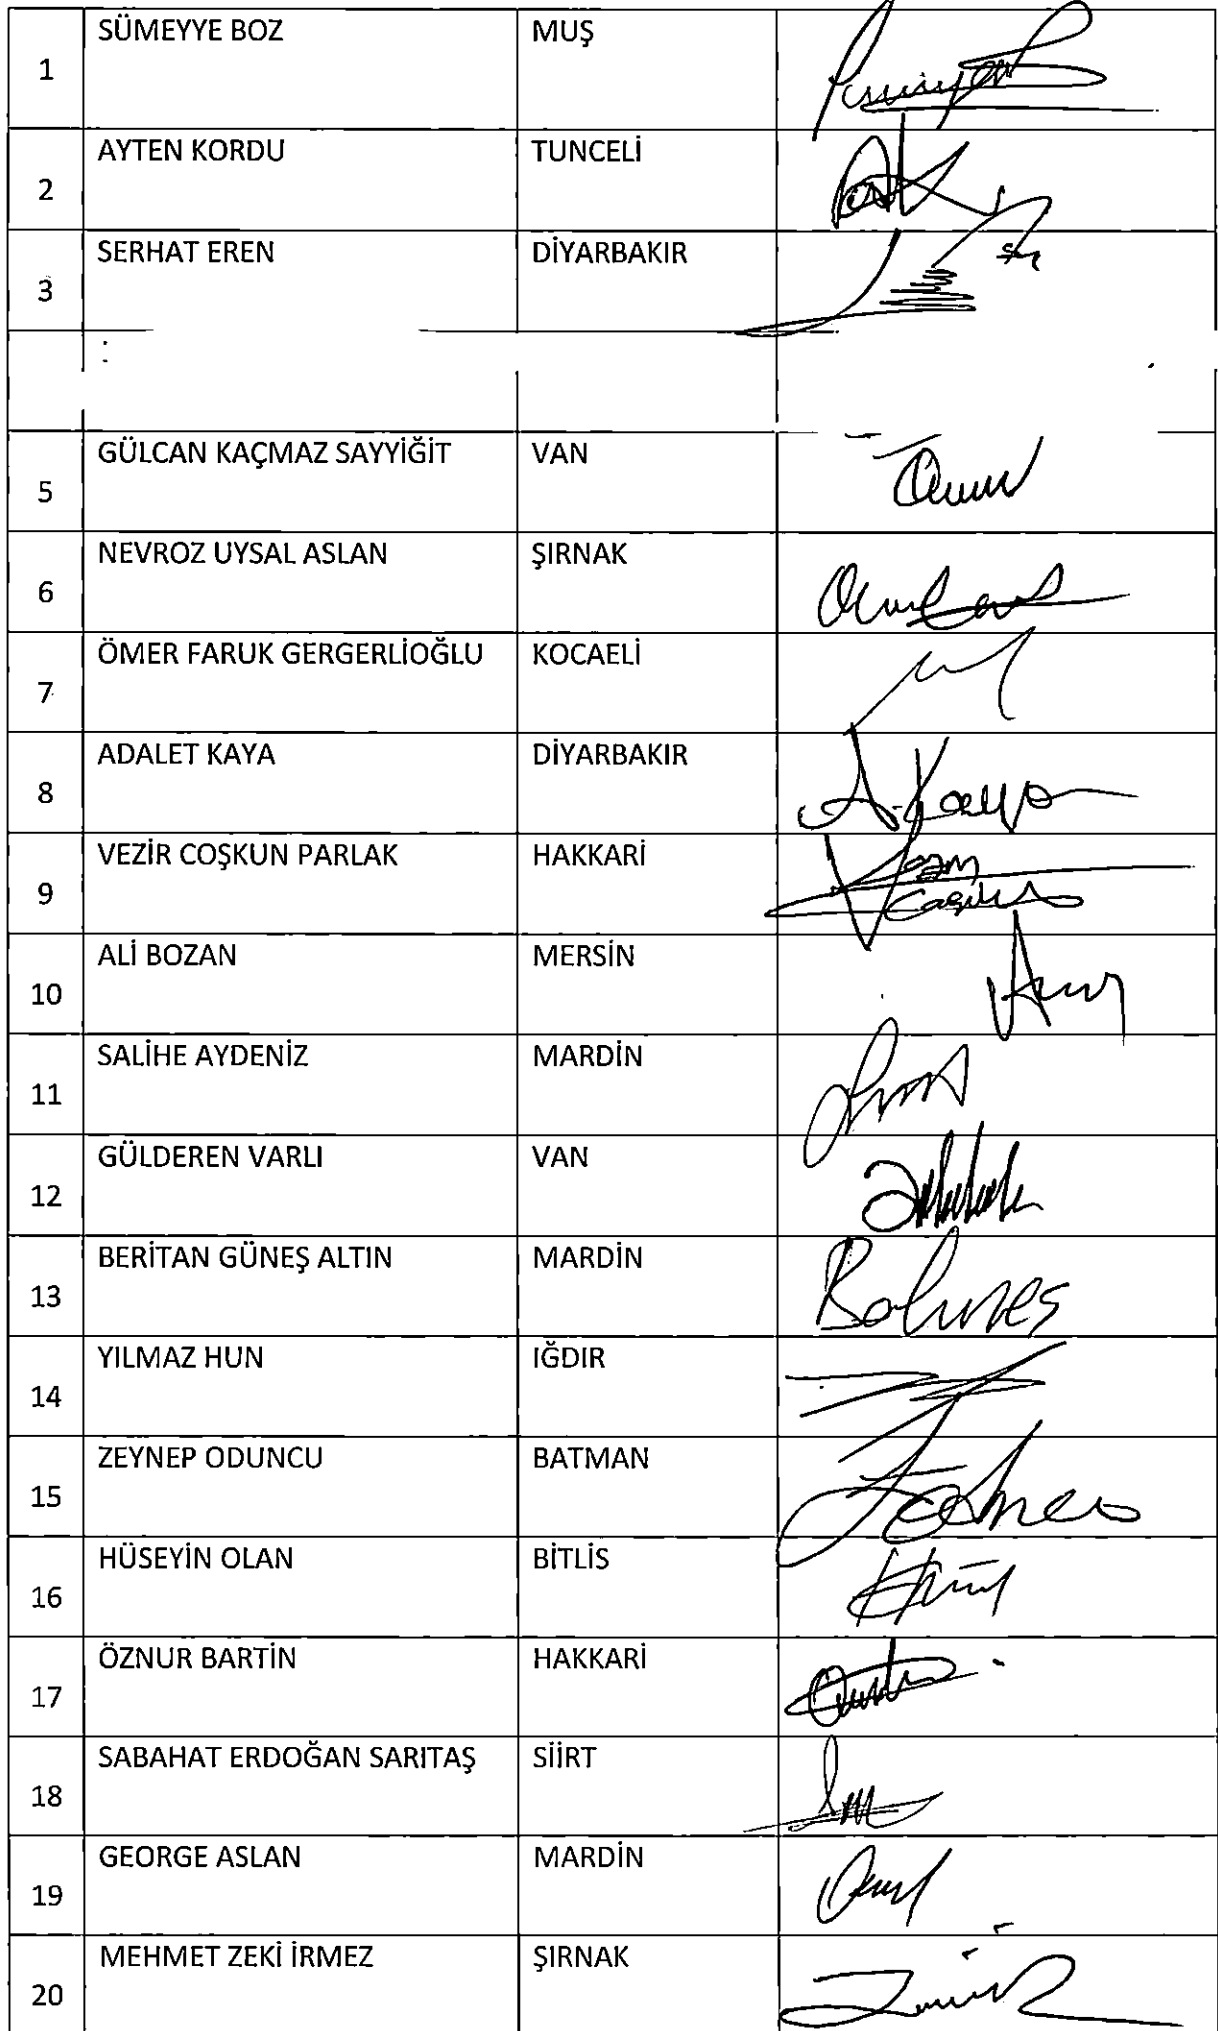 1 SÜMEYYE BOZ MUŞ
2 AYTEN KORDU TUNCELİ
3 SERHAT EREN DİYARBAKIR
5 GÜLCAN KAÇMAZ SAYYİĞİT VAN
6 NEVROZ UYSAL ASLAN ŞIRNAK
7 ÖMER FARUK GERGERLİOĞLU KOCAELİ
8 ADALET KAYA DİYARBAKIR A. Kaya
9 VEZİR COŞKUN PARLAK HAKKARİ
10 ALİ BOZAN MERSİN
11 SALİHE AYDENİZ MARDİN
12 GÜLDEREN VARLI VAN
13 BERİTAN GÜNEŞ ALTIN MARDİN
14 YILMAZ HUN IĞDIR
15 ZEYNEP ODUNCU BATMAN
16 HÜSEYİN OLAN BİTLİS
17 ÖZNUR BARTİN HAKKARİ
18 SABAHAT ERDOĞAN SARITAŞ SİİRT
19 GEORGE ASLAN MARDİN
20 MEHMET ZEKİ İRMEZ ŞIRNAK